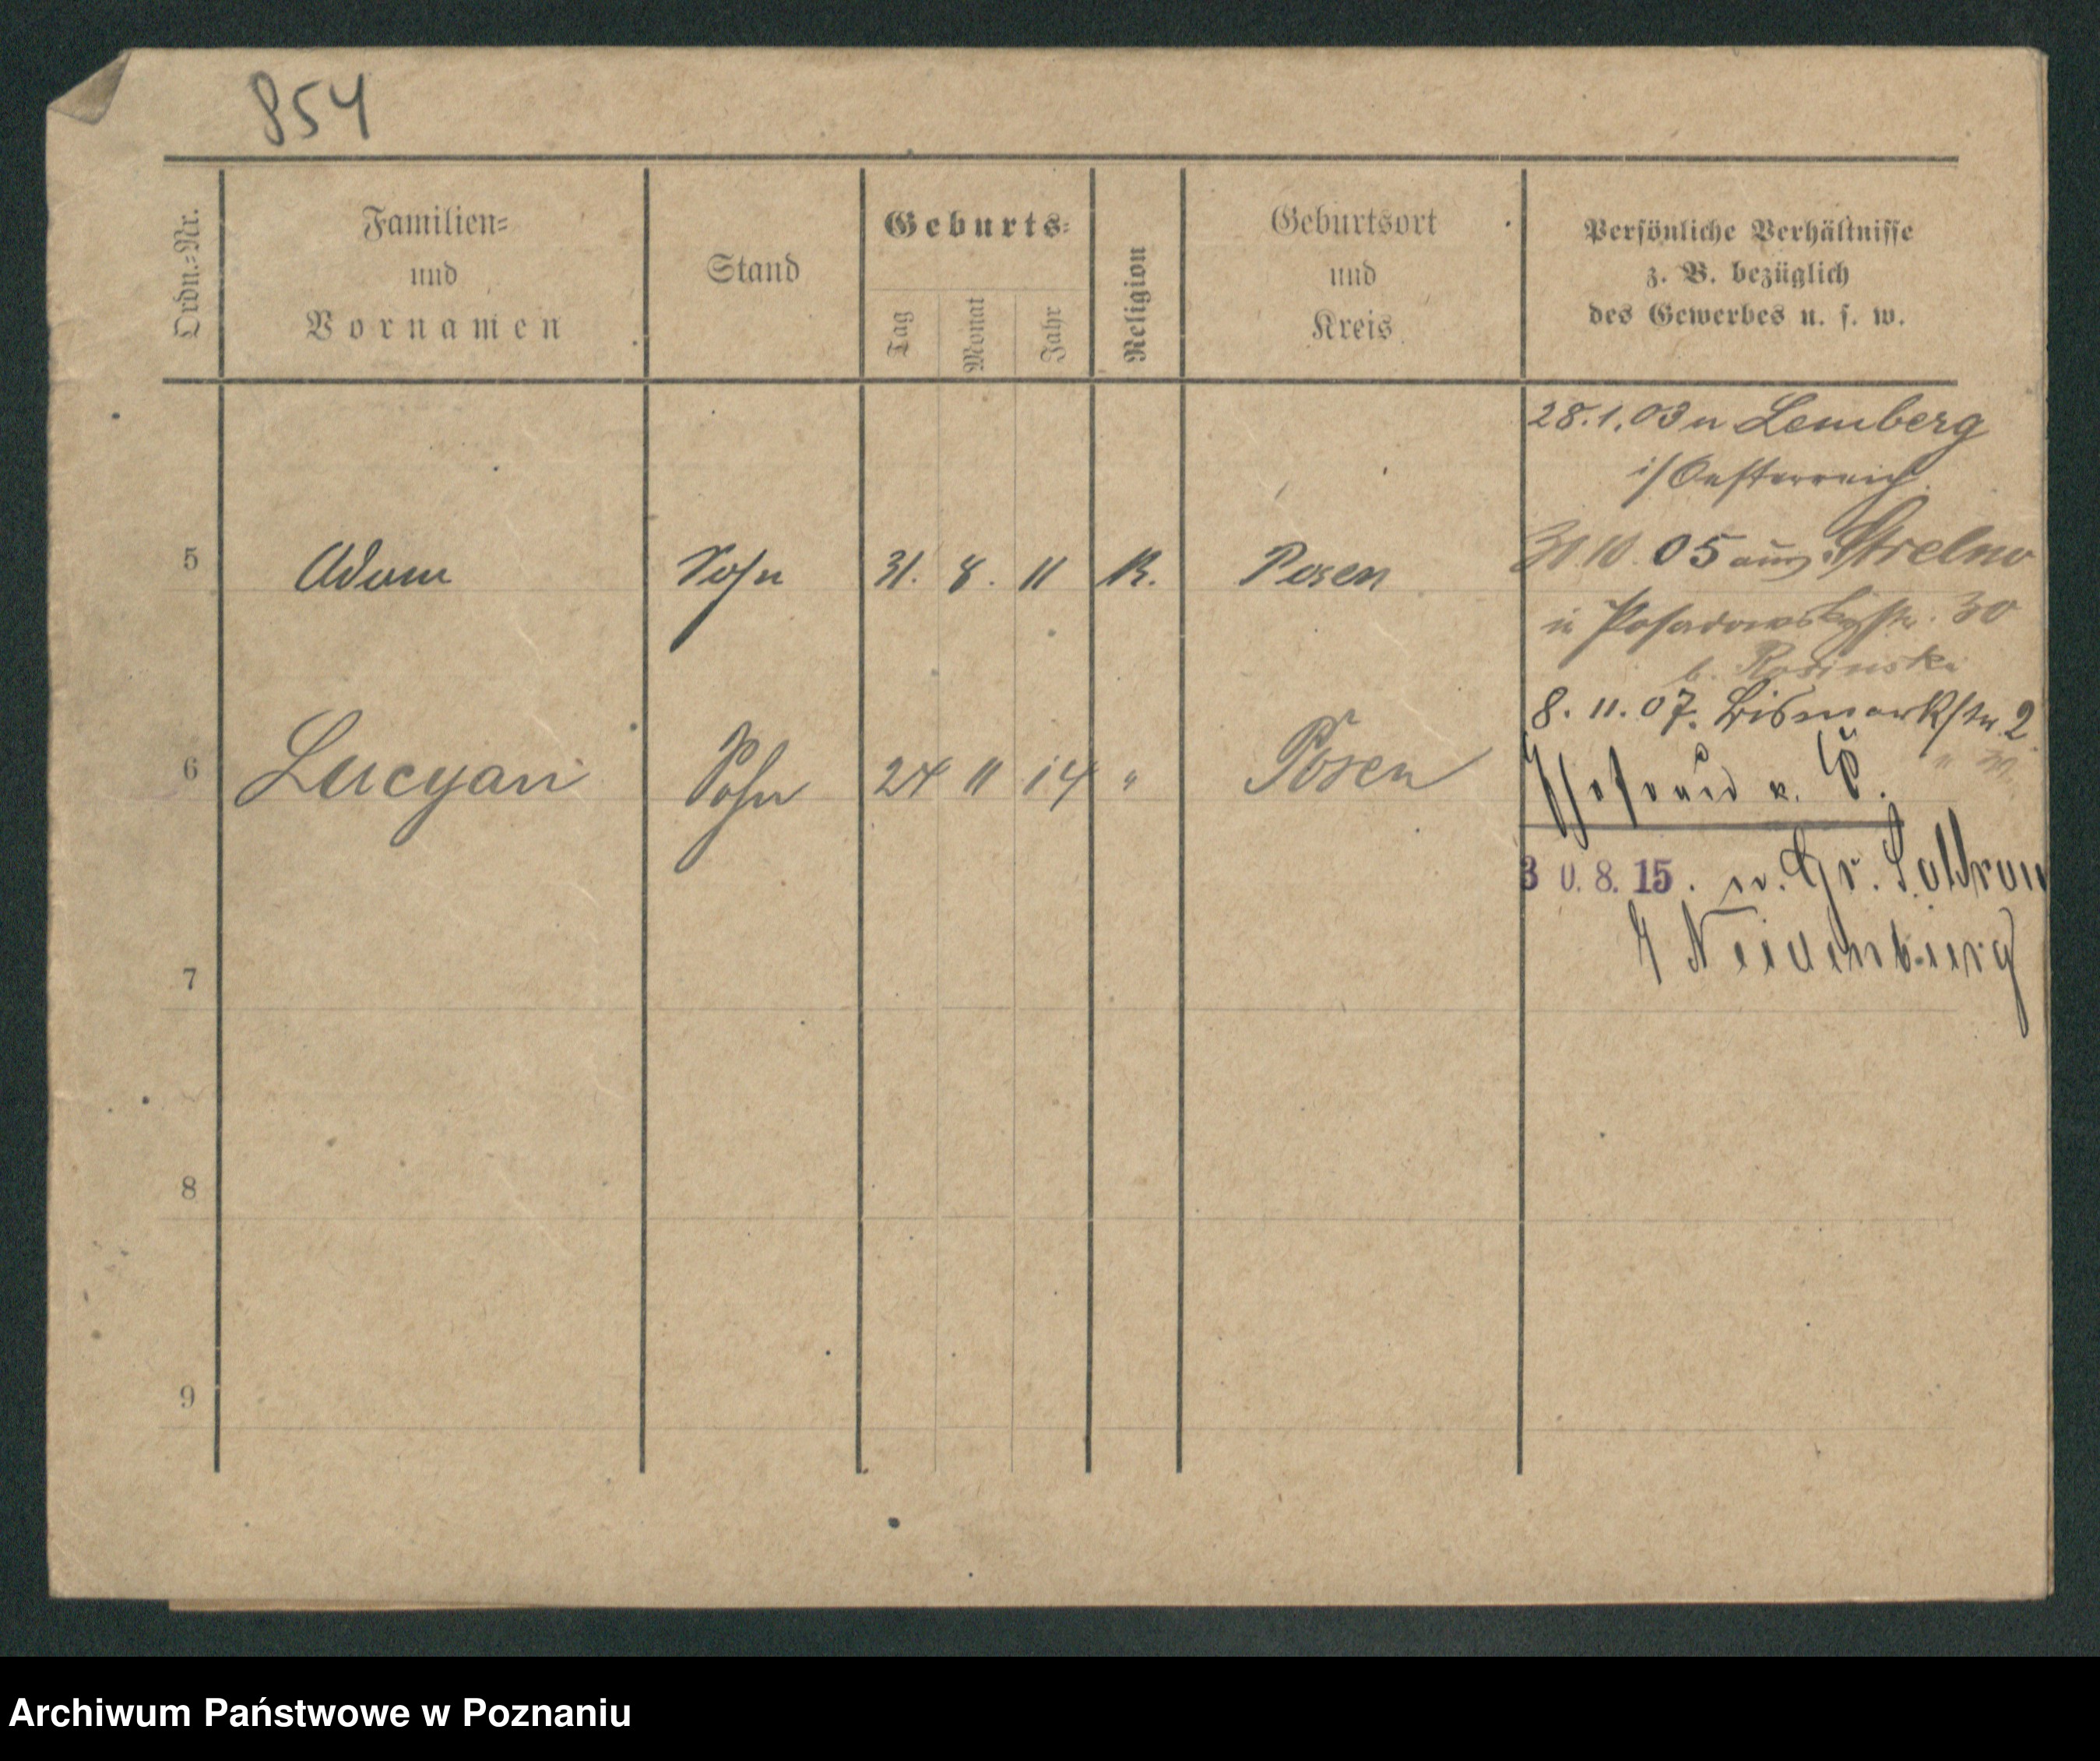 854
Ordn.=Nr.
Familien=
und
Vornamen
Stand
Geburts=
Tag
Monat
Jahr
Religion
Geburtsort
und
Kreis
Persönliche Verhältnisse
z. B. bezüglich
des Gewerbes u. s. w.
28.1.03 n Lemberg
i/ Oesterreich.
5 Adam Sohn 31. 8. 11 K. Posen
31 10 05 aus Strelno
in Posadowskystr. 30
b. Rosinski
8. 11. 07. Bismarkstr 2
6 Lucyan Sohn 24 11 14 " Posen
v.
30.8.15. n. Gr.
Neidenburg
7
8
9
Archiwum Państwowe w Poznaniu